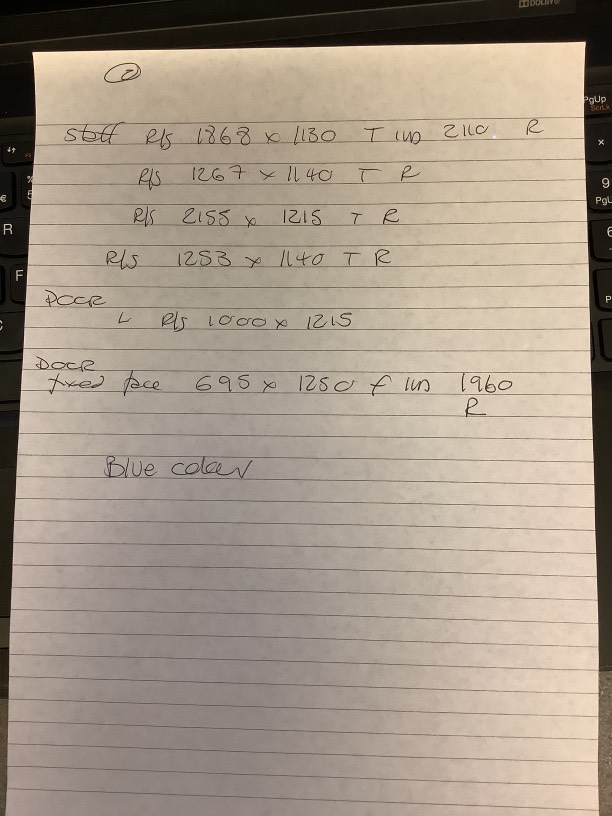 2
Staff R/S 1868 x 1130 T 2110. R
R/S 1267 x 1140 T R
R/S 2155 x 1215 T R
R/S 1253 x 1140 T R
DOOR
L R/S 1000 x 1215
DOOR
fixed face 695 x 1250 F 1960
R
Blue colour
DOLBY
PgUp
ScrLk
9
PgU
6
P
R
F
€
%
5